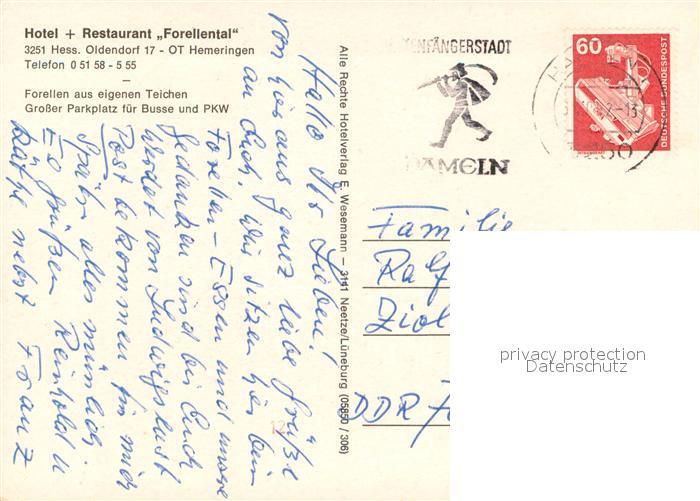 Hotel + Restaurant „Forellental"
3251 Hess. Oldendorf 17 - OT Hemeringen
Telefon 0 51 58 - 5 55
–
Forellen aus eigenen Teichen
Großer Parkplatz für Busse und PKW
Hallo Ihr Lieben!
Von hier aus ganz liebe Grüße
an Euch. Wir sitzen hier beim
Forellen-Essen und unsere
Gedanken sind bei Euch
Werdet von Ludwigslust
Post bekommen für mich
Später alles mündlich.
Es grüßen Reinhold u
Käthe nebst Franz
Alle Rechte Hotelverlag E. Wesemann – 3141 Neetze/Lüneburg (05850 / 306)
RATTENFÄNGERSTADT
HAMELN
60
DEUTSCHE BUNDESPOST
Familie
Ralf
Ziol
DDR
privacy protection
Datenschutz